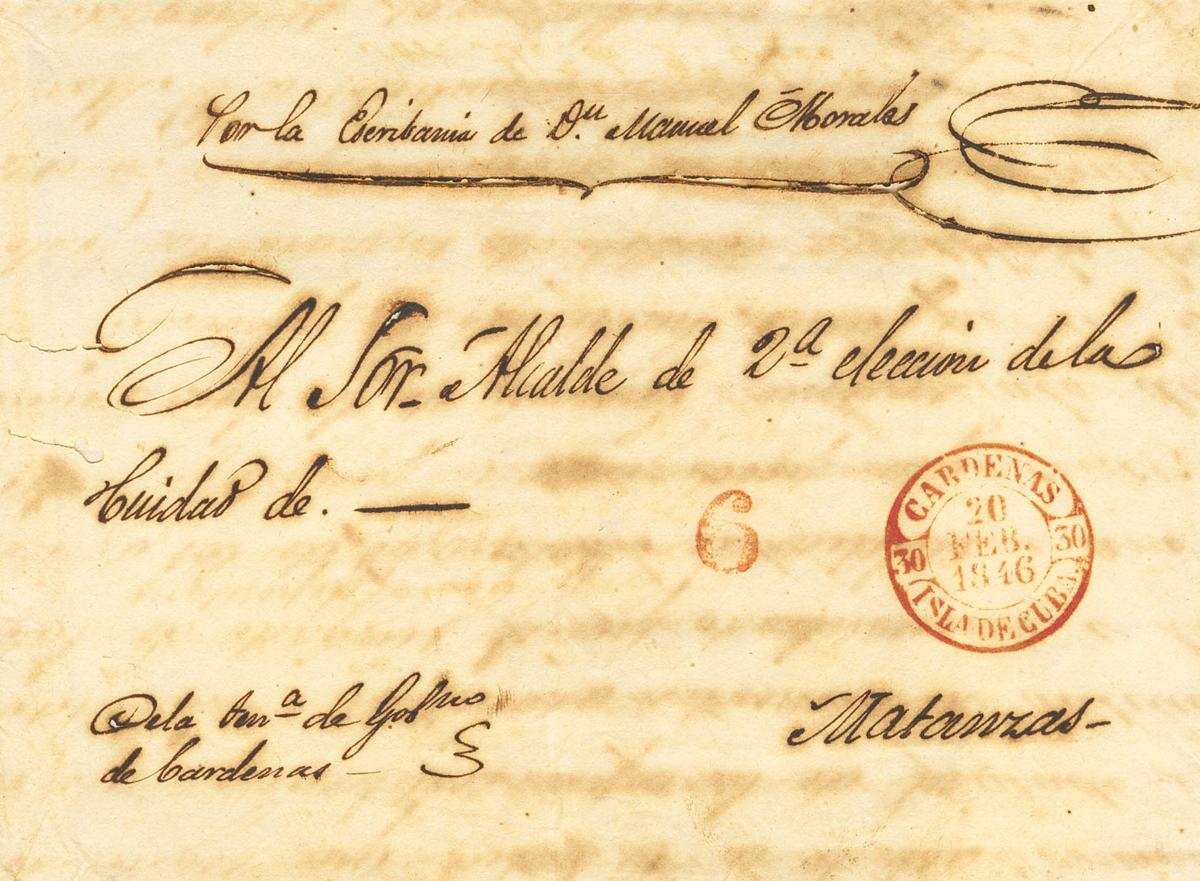 Por la Escribania de Dn. Manuel Morales
Al Sor. Alcalde de 2ª eleccion de la
Cuidad de. —
6
CARDENAS
20
FEB.
1846
30
30
ISLA DE CUBA.
De la tenª de Gobno
de Cardenas —
Matanzas —